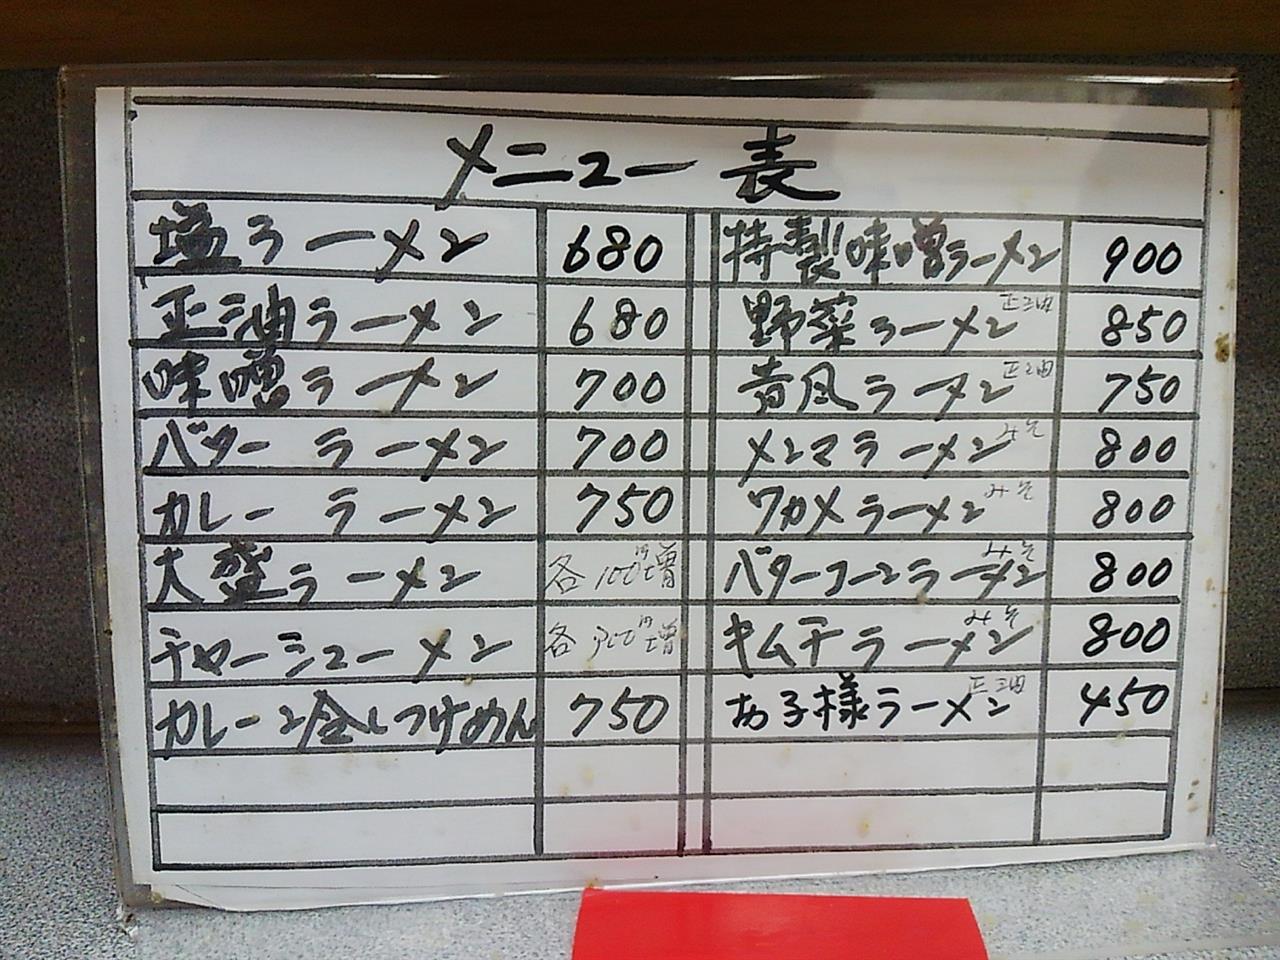 メニュー表
塩ラーメン 680
正油ラーメン 680
味噌ラーメン 700
バターラーメン 700
カレーラーメン 750
大盛ラーメン 各100円増
チャーシューメン 各300円増
カレー冷しつけめん 750
特製味噌ラーメン 900
野菜ラーメン 正油 850
青風ラーメン 正油 750
メンマラーメン みそ 800
ワカメラーメン みそ 800
バターコーンラーメン みそ 800
キムチラーメン みそ 800
お子様ラーメン 正油 450